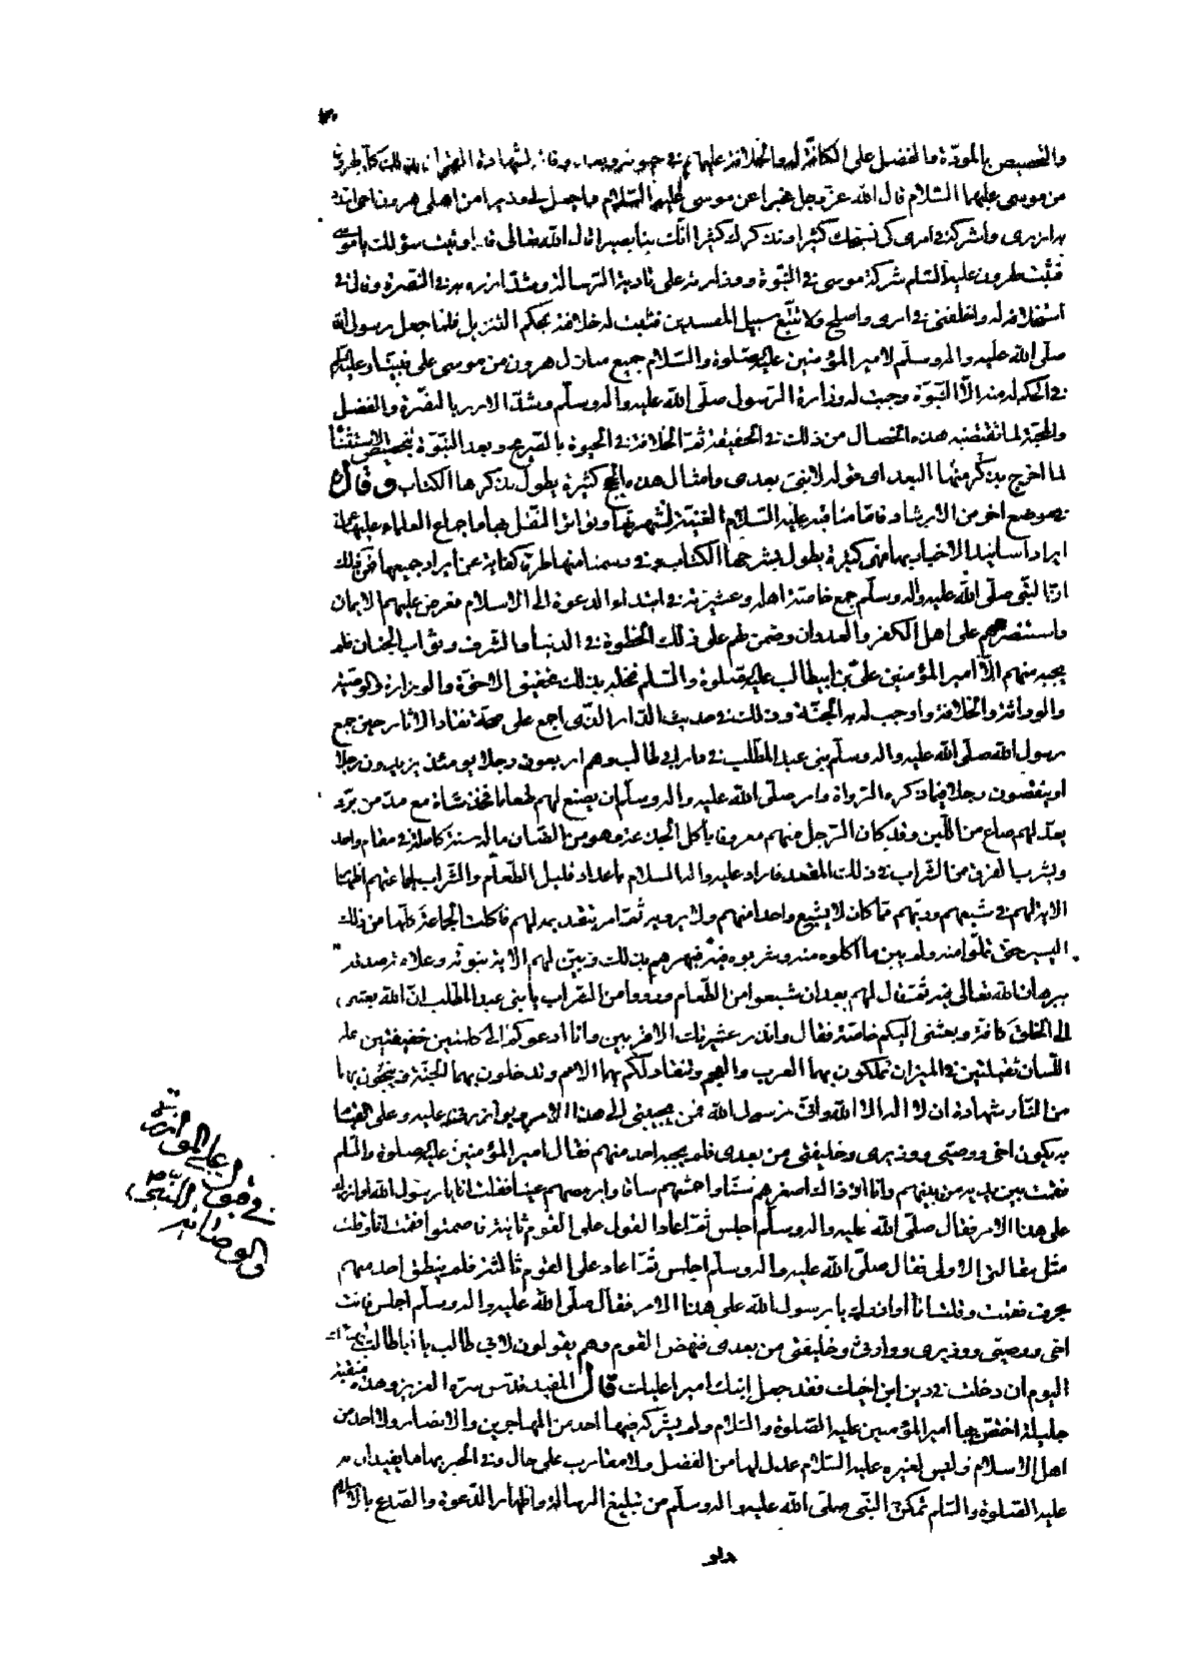 والتخصيص بالمودة والفضل على الكافة له والخلافة عليهم في حياته وبعد وفاته لشهادة القرآن بذلك كله لهرون
من موسى عليهما السلام قال الله عز وجل مخبرا عن موسى عليه السلام واجعل لي وزيرا من اهلي هرون اخي اشدد
به ازري واشركه في امري كي نسبحك كثيرا ونذكرك كثيرا انك كنت بنا بصيرا قال الله تعالى قد اوتيت سؤلك يا موسى
فثبت لهرون عليه السلام شركة موسى في النبوة ووزارته على تادية الرسالة وشد ازره به في النصرة وقال في
استخلافه له واخلفني في قومي واصلح ولا تتبع سبيل المفسدين فثبتت له خلافته بمحكم التنزيل فلما جعل رسول الله
صلى الله عليه واله وسلم لامير المؤمنين عليه الصلوة والسلام جميع منازل هرون من موسى على نبينا وعليهما السلام
في الحكم له منه الا النبوة وجبت له وزارة الرسول صلى الله عليه واله وسلم وشد الازر بالنصرة والفضل
والمحبة لما تقتضيه هذه الخصال من ذلك في الحقيقة ثم الخلافة في الحيوة بالصريح وبعد النبوة بتخصيص الاستثناء
لما اخرج بذكر منها البعد اي قوله لا نبي بعدي وامثال هذه الحجج كثيرة يطول بذكرها الكتاب وقال
في موضع اخر من الارشاد فاما مناقبه عليه السلام الغنية لشهرتها وتواتر النقل بها واجماع العلماء عليها عن
ايراد اسانيد الاخبار بها فهي كثيرة يطول بشرحها الكتاب وفي رسمنا منها طرفا كفاية عن ايراد جميعها فمن ذلك
ان النبي صلى الله عليه واله وسلم جمع خاصة اهله وعشيرته في ابتداء الدعوة الى الاسلام فعرض عليهم الايمان
واستنصرهم على اهل الكفر والعدوان وضمن لهم على ذلك الحظوة في الدنيا والشرف وثواب الجنان فلم
يجبه منهم الا امير المؤمنين علي بن ابيطالب عليه الصلوة والسلام فنحله بذلك تحقيق الاخوة والوزارة والوصية
والوراثة والخلافة واوجب له به الجنة وذلك في حديث الدار الذي اجمع على صحة نقاد الاثار حين جمع
رسول الله صلى الله عليه واله وسلم بني عبد المطلب في دار ابي طالب وهم اربعون رجلا يومئذ يزيدون رجلا
او ينقصون رجلا فيما ذكره الرواة وامر صلى الله عليه واله وسلم ان يصنع لهم طعاما فخذ شاة مع مد من بر
ويعد لهم صاع من اللبن وقد كان الرجل منهم معروفا باكل الجذعة وهو من الضان ما له سنة كاملة في مقام واحد
ويشرب الفرق من الشراب في ذلك المقعد فاراد عليه واله السلام باعداد قليل الطعام والشراب لجماعتهم اظهار
الاية لهم في شبعهم وريهم مما كان لا يشبع واحدا منهم ولا يرويه ثم امر بتقديمه لهم فاكلت الجماعة كلها من ذلك
اليسير حتى تملوا منه ولم يبن ما اكلوه منه وشربوه فيه فبهرهم بذلك وبين لهم الاية بنبوته وعلامة صدقه
ببرهان الله تعالى فيه ثم قال لهم بعد ان شبعوا من الطعام ورووا من الشراب يا بني عبد المطلب ان الله بعثني
الى الخلق كافة وبعثني اليكم خاصة فقال وانذر عشيرتك الاقربين وانا ادعوكم الى كلمتين خفيفتين على
اللسان ثقيلتين في الميزان تملكون بهما العرب والعجم وتنقاد لكم بهما الامم وتدخلون بهما الجنة وتنجون بهما
من النار شهادة ان لا اله الا الله واني رسول الله فمن يجيبني الى هذا الامر ويوازرني عليه وعلى القيام
به يكون اخي ووصيي ووزيري وخليفتي من بعدي فلم يجبه احد منهم فقال امير المؤمنين عليه الصلوة والسلام
فقمت بين يديه من بينهم وانا اذ ذاك اصغرهم سنا واحمشهم ساقا وارمصهم عينا فقلت انا يا رسول الله اوازرك
على هذا الامر فقال صلى الله عليه واله وسلم اجلس ثم اعاد القول على القوم ثانية فاصمتوا فقمت انا وقلت
مثل مقالتي الاولى فقال صلى الله عليه واله وسلم اجلس ثم اعاد على القوم ثالثة فلم ينطق احد منهم
بحرف فقمت وقلت انا اوازرك يا رسول الله على هذا الامر فقال صلى الله عليه واله وسلم اجلس فانت
اخي ووصيي ووزيري ووارثي وخليفتي من بعدي فنهض القوم وهم يقولون لابي طالب يا ابا طالب
اليوم ان دخلت في دين ابن اخيك فقد جعل ابنك اميرا عليك قال المفيد قدس سره العزيز وهذه منقبة
جليلة اختص بها امير المؤمنين عليه الصلوة والسلام ولم يشركه فيها احد من المهاجرين والانصار ولا احد من
اهل الاسلام وليس لغيره عليه السلام عدل لها من الفضل ولا مقارب على حال وفي الخبر بها ما يفيد ان به
عليه الصلوة والسلام تمكن النبي صلى الله عليه واله وسلم من تبليغ الرسالة واظهار الدعوة والصدع بالاسلام
ولو